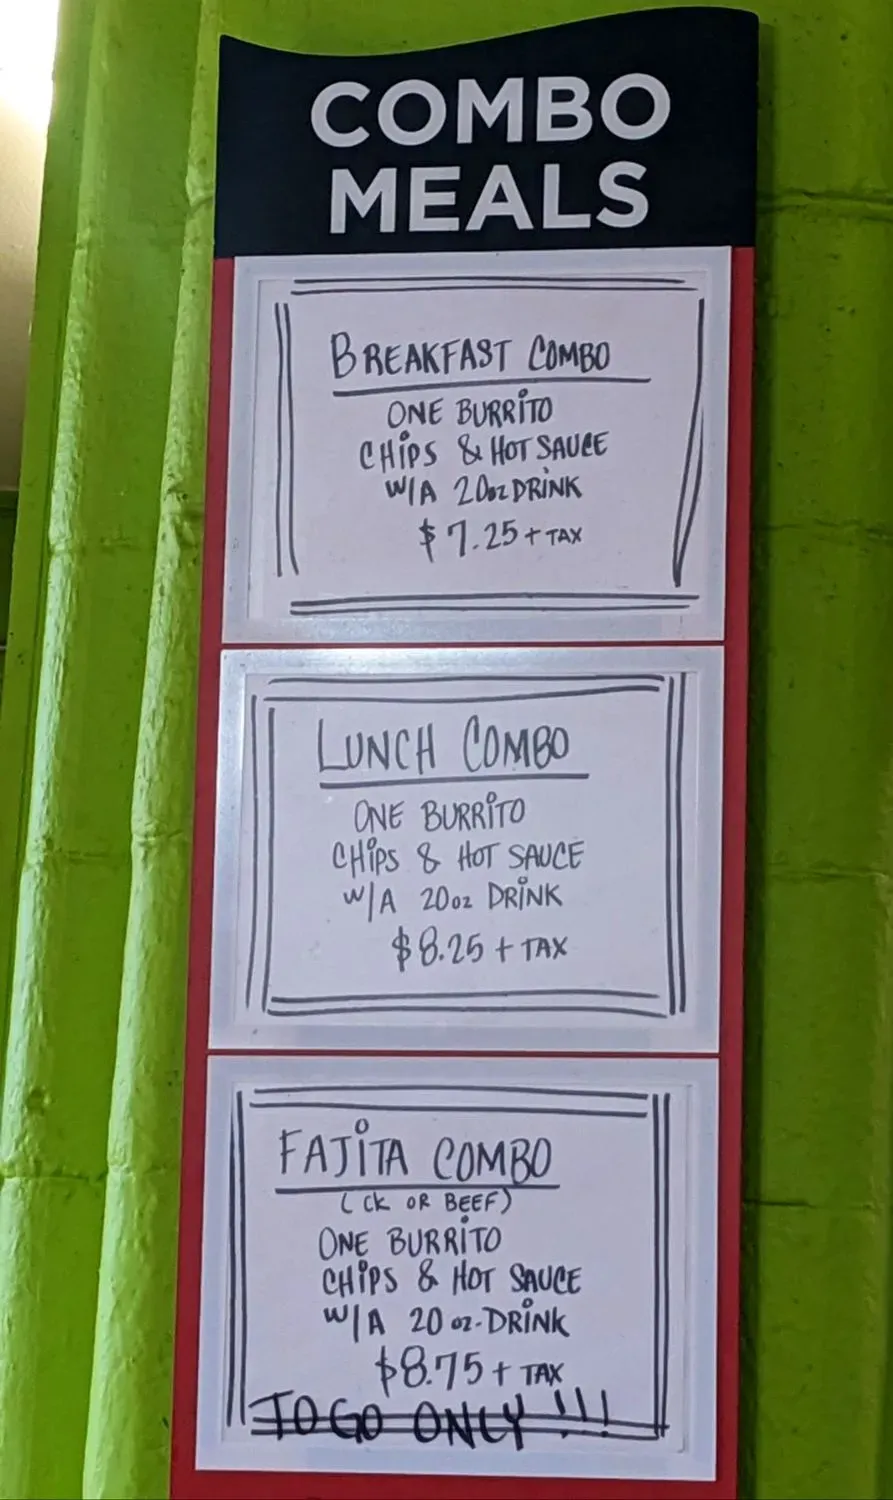 COMBO
MEALS
BREAKFAST COMBO
ONE BURRITO
CHIPS & HOT SAUCE
W/A 20oz DRINK
$7.25 + TAX
LUNCH COMBO
ONE BURRITO
CHIPS & HOT SAUCE
W/A 20oz DRINK
$8.25 + TAX
FAJITA COMBO
(CK OR BEEF)
ONE BURRITO
CHIPS & HOT SAUCE
W/A 20 oz-DRINK
$8.75 + TAX
TO GO ONLY!!!